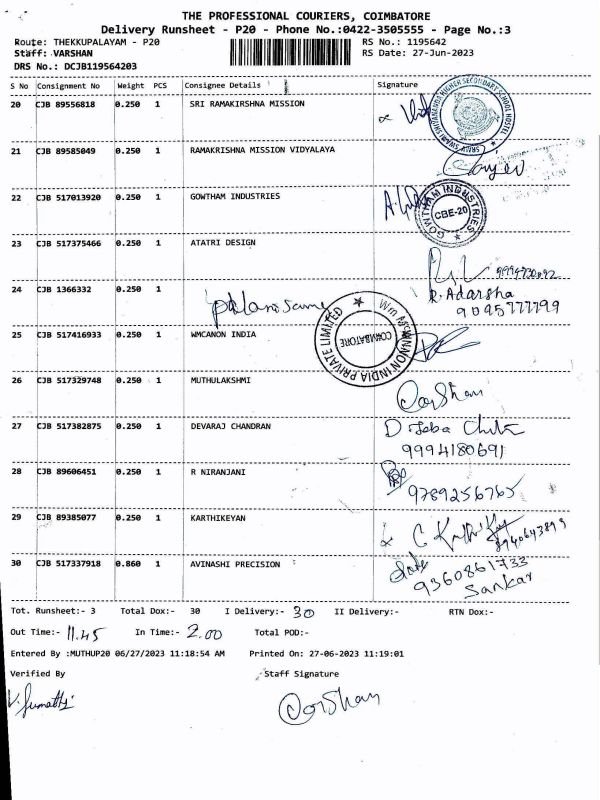 THE PROFESSIONAL COURIERS, COIMBATORE
Delivery Runsheet - P20 - Phone No.:0422-3505555 - Page No.:3
Route: THEKKUPALAYAM - P20
RS No.: 1195642
Staff: VARSHAN
RS Date: 27-Jun-2023
DRS No.: DCJB119564203
S No Consignment No Weight PCS Consignee Details Signature
20 CJB 89556818 0.250 1 SRI RAMAKIRSHNA MISSION
SWAMI SHIVANANDA HIGHER SECONDARY SCHOOL HOSTEL
21 CJB 89585049 0.250 1 RAMAKRISHNA MISSION VIDYALAYA
22 CJB 517013920 0.250 1 GOWTHAM INDUSTRIES
GOWTHAM INDUSTRIES CBE-20
23 CJB 517375466 0.250 1 ATATRI DESIGN
24 CJB 1366332 0.250 1
R. Adarsha
9095777799
25 CJB 517416933 0.250 1 WMCANON INDIA
INDIA PRIVATE LIMITED COIMBATORE
26 CJB 517329748 0.250 1 MUTHULAKSHMI
27 CJB 517382875 0.250 1 DEVARAJ CHANDRAN
9994180691
28 CJB 89606451 0.250 1 R NIRANJANI
9789256765
29 CJB 89385077 0.250 1 KARTHIKEYAN
8940643899
30 CJB 517337918 0.860 1 AVINASHI PRECISION
9360861733
Sankar
Tot. Runsheet:- 3 Total Dox:- 30 I Delivery:- 30 II Delivery:- RTN Dox:-
Out Time:- 11.45 In Time:- 2.00 Total POD:-
Entered By :MUTHUP20 06/27/2023 11:18:54 AM Printed On: 27-06-2023 11:19:01
Verified By Staff Signature
V. Sumathi